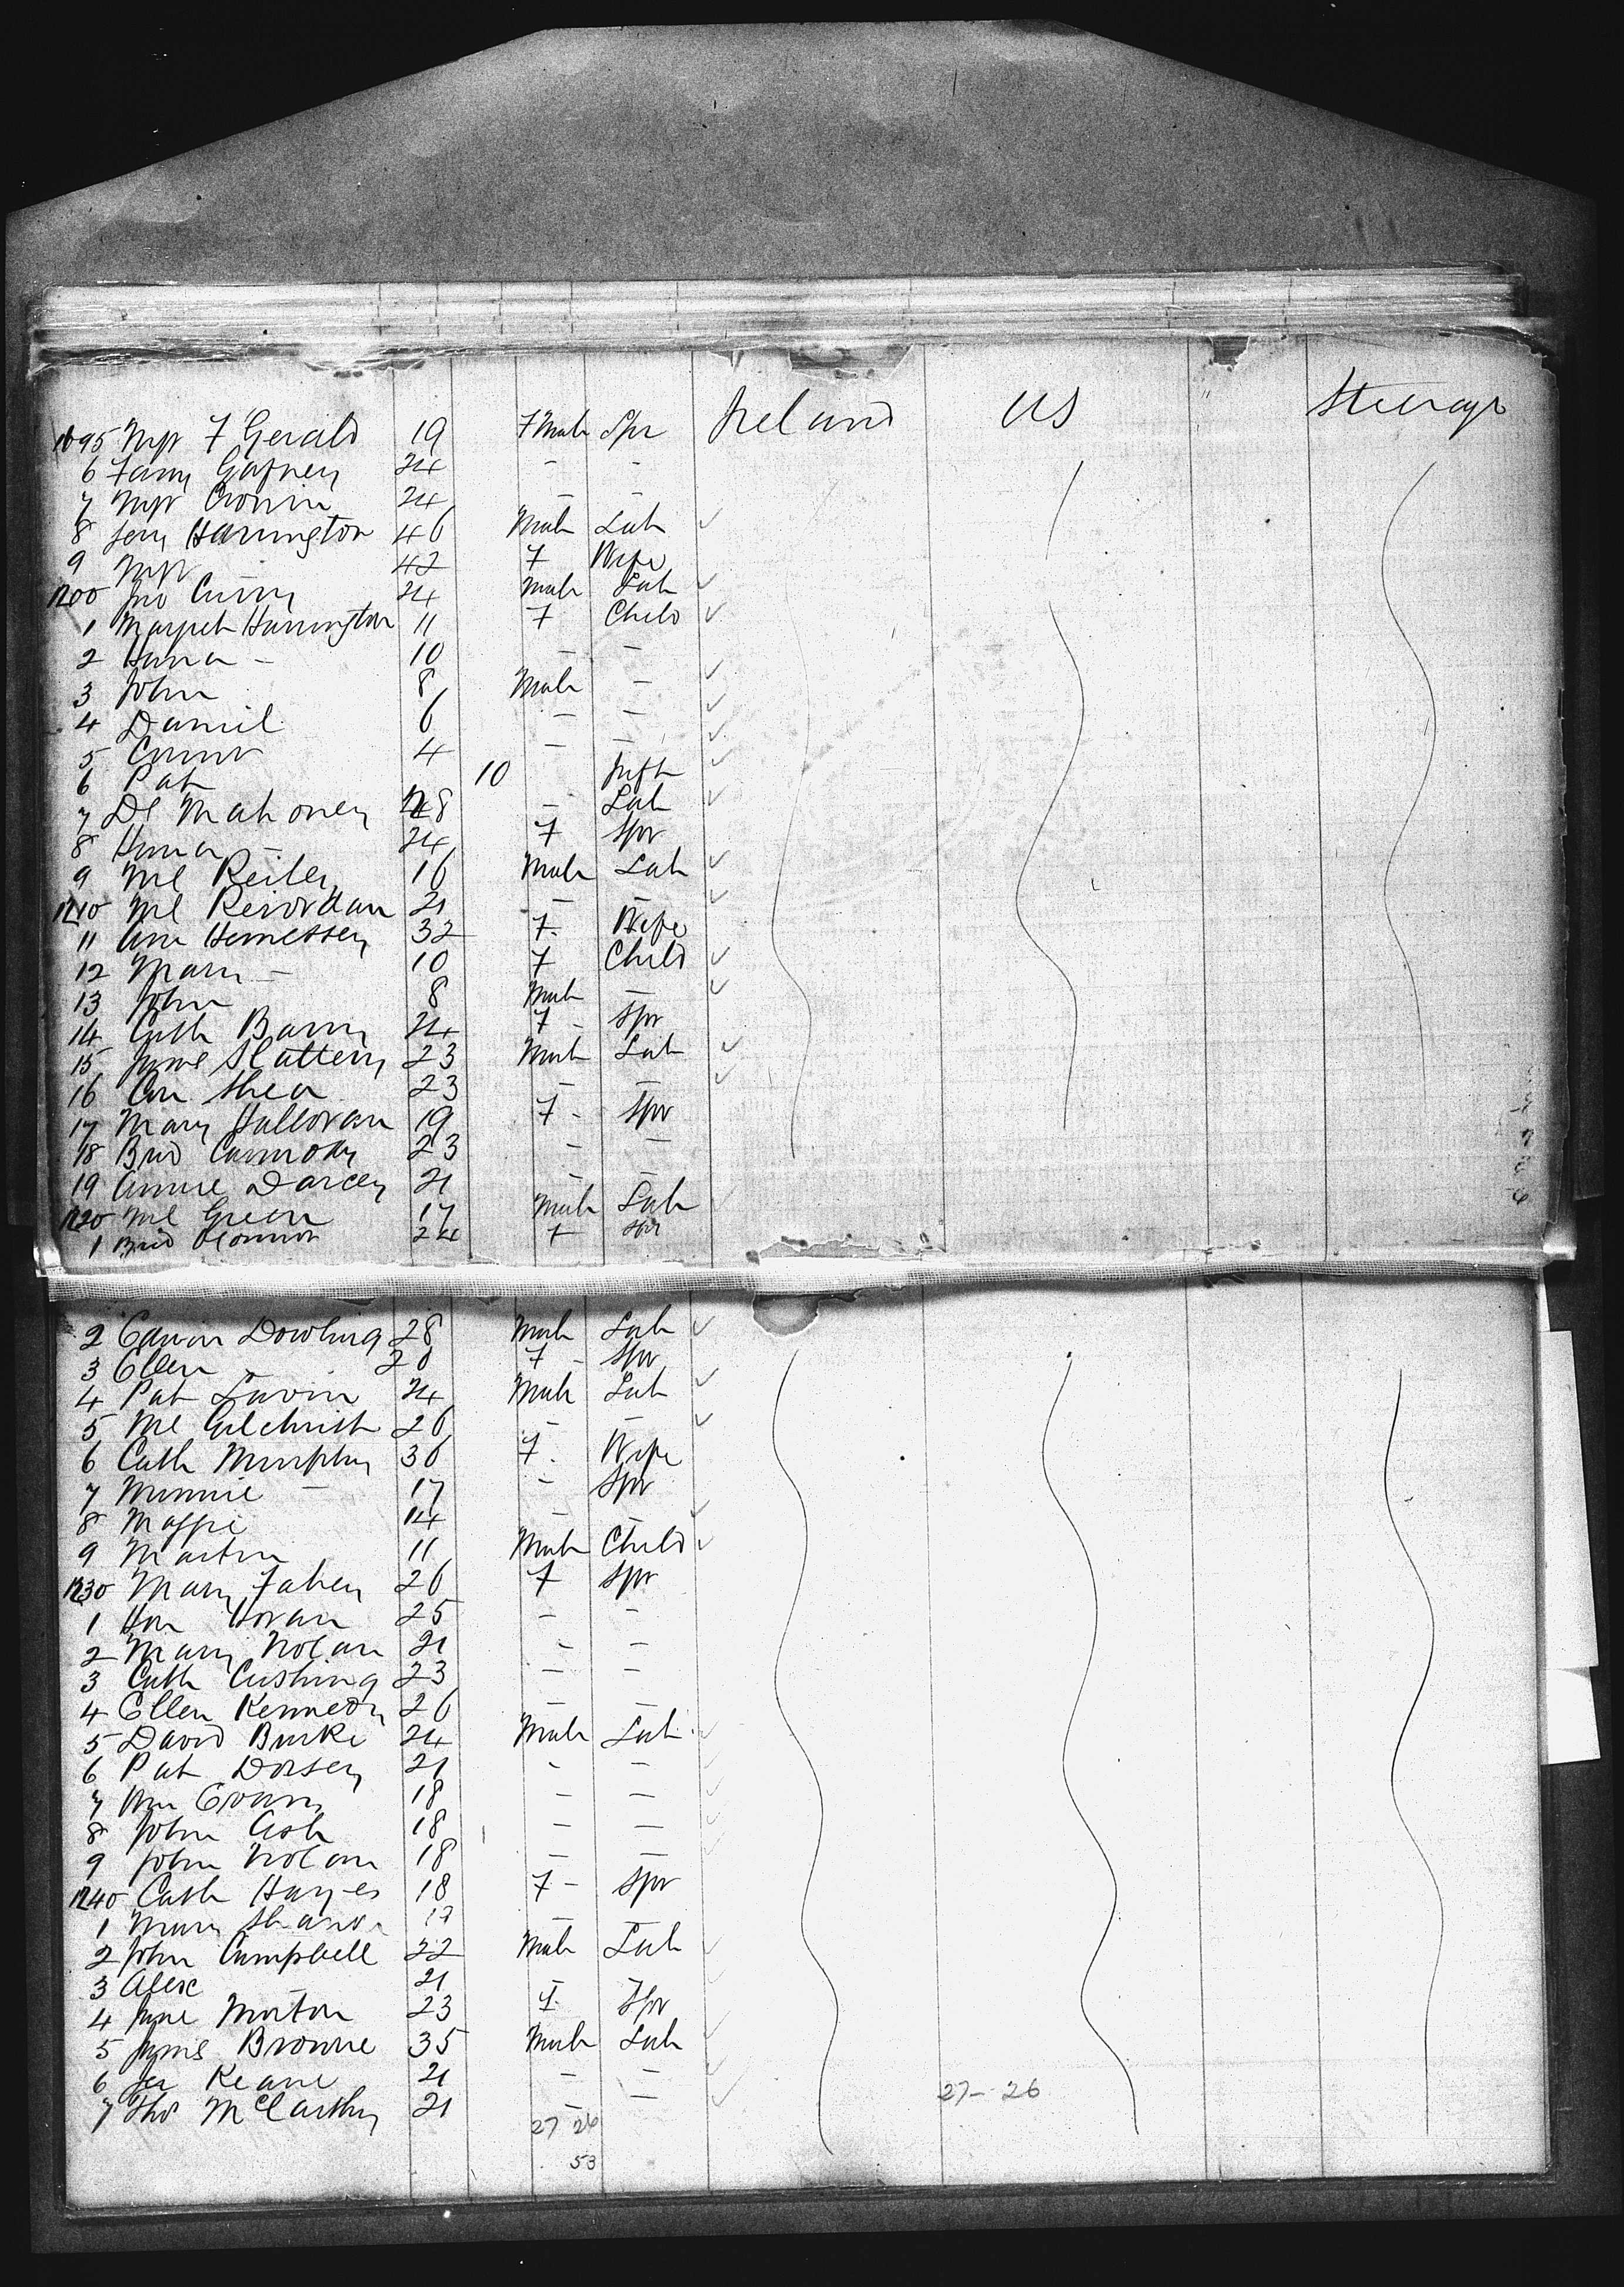 1695 Mgt F Gerald 19 Female Spr Ireland US Steerage
6 Fanny Gafney 24 - -
7 Mgt Cronin 24 - -
8 Jerry Harrington 46 Male Lab ✓
9 Mgt 42 F Wife
1700 Jno Curry 24 Male Lab ✓
1 Margret Harrington 11 F Child ✓
2 Hana - 10 - -
3 John 8 Male - ✓
4 Daniel 6 - - ✓
5 Connor 4 - - ✓
6 Pat 10 Inft ✓
7 Dl Mahoney 28 - Lab ✓
8 Hana - 24 F Spr
9 Ml Reiley 16 Male Lab ✓
1710 Ml Reirordan 21 - - ✓
11 Ann Hennessey 32 F. Wife
12 Mary - 10 F Child ✓
13 John 8 Male - ✓
14 Cath Barry 24 F - Spr
15 James Slattery 23 Male Lab ✓
16 Con Shea 23 - - ✓
17 Mary Halloran 19 F - Spr
18 Brid Carmody 23 - -
19 Annie Darcey 21 - -
1720 Ml Green 17 Male Lab ✓
1 Brid OConnor 24 F Spr
2 Edwin Dowling 28 Male Lab ✓
3 Ellen - 20 F - Spr
4 Pat Lavin 24 Male Lab ✓
5 Ml Gilchrist 26 - - ✓
6 Cath Murphy 36 F. Wife
7 Minnie - 17 - Spr
8 Maggie 14 - - ✓
9 Martin 11 Male Child ✓
1730 Mary Fahey 26 F Spr
1 Hon Horan 25 - -
2 Mary Nolan 21 - -
3 Cath Cushing 23 - -
4 Ellen Kennedy 26 - -
5 David Burke 24 Male Lab ✓
6 Pat Dorsey 21 - - ✓
7 Wm Evans 18 - - ✓
8 John Ash 18 - - ✓
9 John Nolan 18 - - ✓
1740 Cath Hayes 18 F - Spr
1 Mary 17 - -
2 John Campbell 22 Male Lab ✓
3 Alex 21 - - ✓
4 Jane Morton 23 F. Spr
5 James Browne 35 Male Lab ✓
6 Jer Keane 21 - - ✓
7 Tho McCarthy 21 - - ✓ 27 - 26
27 26
53